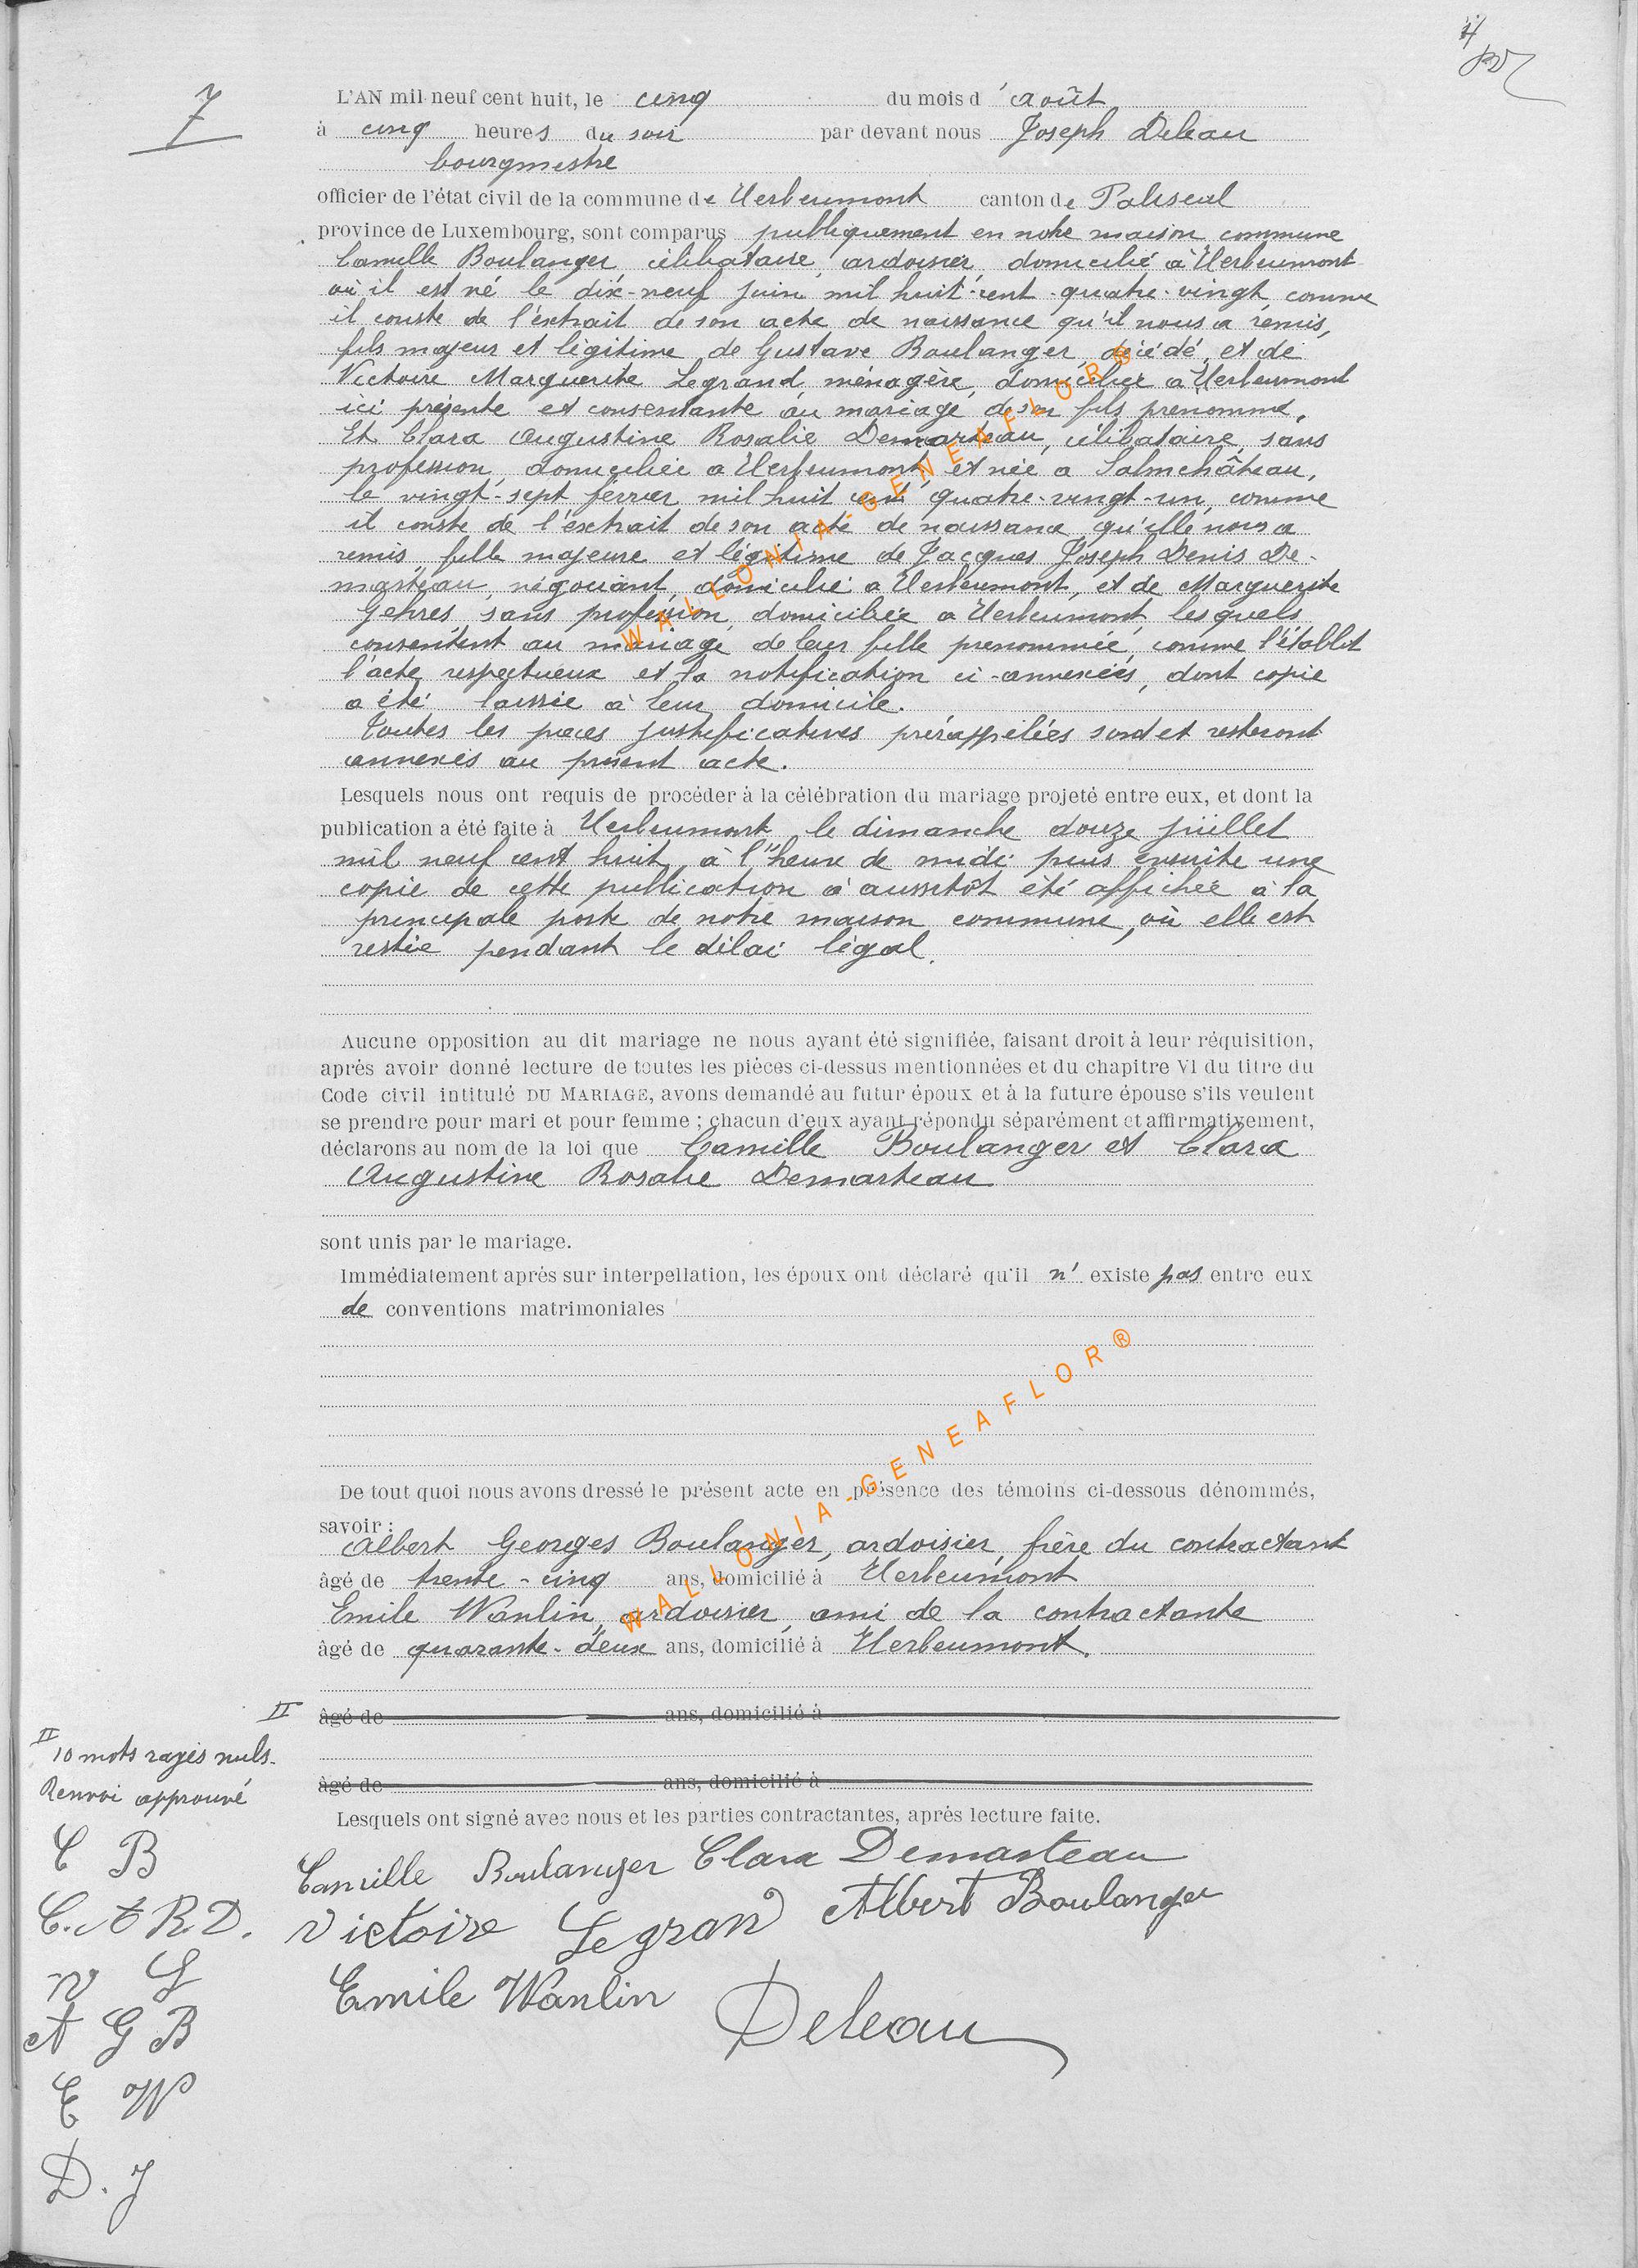 4
7
L'AN mil neuf cent huit, le cinq du mois d'août
à cinq heures du soir par devant nous Joseph Deleau
bourgmestre
officier de l'état civil de la commune de Herbeumont canton de Paliseul
province de Luxembourg, sont comparus publiquement en notre maison commune
Camille Boulanger, célibataire, ardoisier, domicilié à Herbeumont
où il est né le dix-neuf juin mil huit-cent-quatre-vingt, comme
il conste de l'extrait de son acte de naissance qu'il nous a remis,
fils majeur et légitime de Gustave Boulanger, décédé, et de
Victoire Marguerite Legrand, ménagère, domiciliée à Herbeumont
ici présente et consentante au mariage de son fils prénommé.
Et Clara Augustine Rosalie Demarteau, célibataire, sans
profession, domiciliée à Herbeumont, et née à Salmchâteau,
le vingt-sept février mil huit cent quatre-vingt-un, comme
il conste de l'extrait de son acte de naissance qu'elle nous a
remis, fille majeure et légitime de Jacques Joseph Denis De-
marteau, négociant, domicilié à Herbeumont, et de Marguerite
Gehres, sans profession, domiciliée à Herbeumont, lesquels
consentent au mariage de leur fille prénommée, comme l'établit
l'acte respectueux et la notification ci-annexées, dont copie
a été laissée à leur domicile.
Toutes les pièces justificatives prérappelées sont et resteront
annexés au présent acte.
Lesquels nous ont requis de procéder à la célébration du mariage projeté entre eux, et dont la
publication a été faite à Herbeumont le dimanche douze juillet
mil neuf cent huit, à l'heure de midi; puis ensuite une
copie de cette publication a aussitôt été affichée à la
principale porte de notre maison commune, où elle est
restée pendant le délai légal.
Aucune opposition au dit mariage ne nous ayant été signifiée, faisant droit à leur réquisition,
après avoir donné lecture de toutes les pièces ci-dessus mentionnées et du chapitre VI du titre du
Code civil intitulé DU MARIAGE, avons demandé au futur époux et à la future épouse s'ils veulent
se prendre pour mari et pour femme ; chacun d'eux ayant répondu séparément et affirmativement,
déclarons au nom de la loi que Camille Boulanger et Clara
Augustine Rosalie Demarteau
sont unis par le mariage.
Immédiatement après sur interpellation, les époux ont déclaré qu'il n'existe pas entre eux
de conventions matrimoniales
De tout quoi nous avons dressé le présent acte en présence des témoins ci-dessous dénommés,
savoir :
Albert Georges Boulanger, ardoisier, frère du contractant
âgé de trente-cinq ans, domicilié à Herbeumont
Emile Wanlin, ardoisier, ami de la contractante
âgé de quarante-deux ans, domicilié à Herbeumont.
II âgé de ans, domicilié à
II 10 mots rayés nuls.
Renvoi approuvé
âgé de ans, domicilié à
Lesquels ont signé avec nous et les parties contractantes, après lecture faite.
C B
Camille Boulanger Clara Demarteau
C. A R. D.
Victoire Legrand Albert Boulanger
V L
Emile Wanlin
A G B
Deleau
E W
D. J
WALLONIA-GENEAFLOR®
WALLONIA-GENEAFLOR®